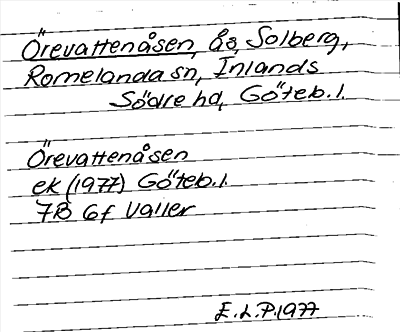 Örevattenåsen, ås, Solberg,
Romelanda sn, Inlands
Södre hd, Göteb. l.
Örevattenåsen
ek (1977) Göteb. l.
7B 6f Valler
E.L.P. 1977